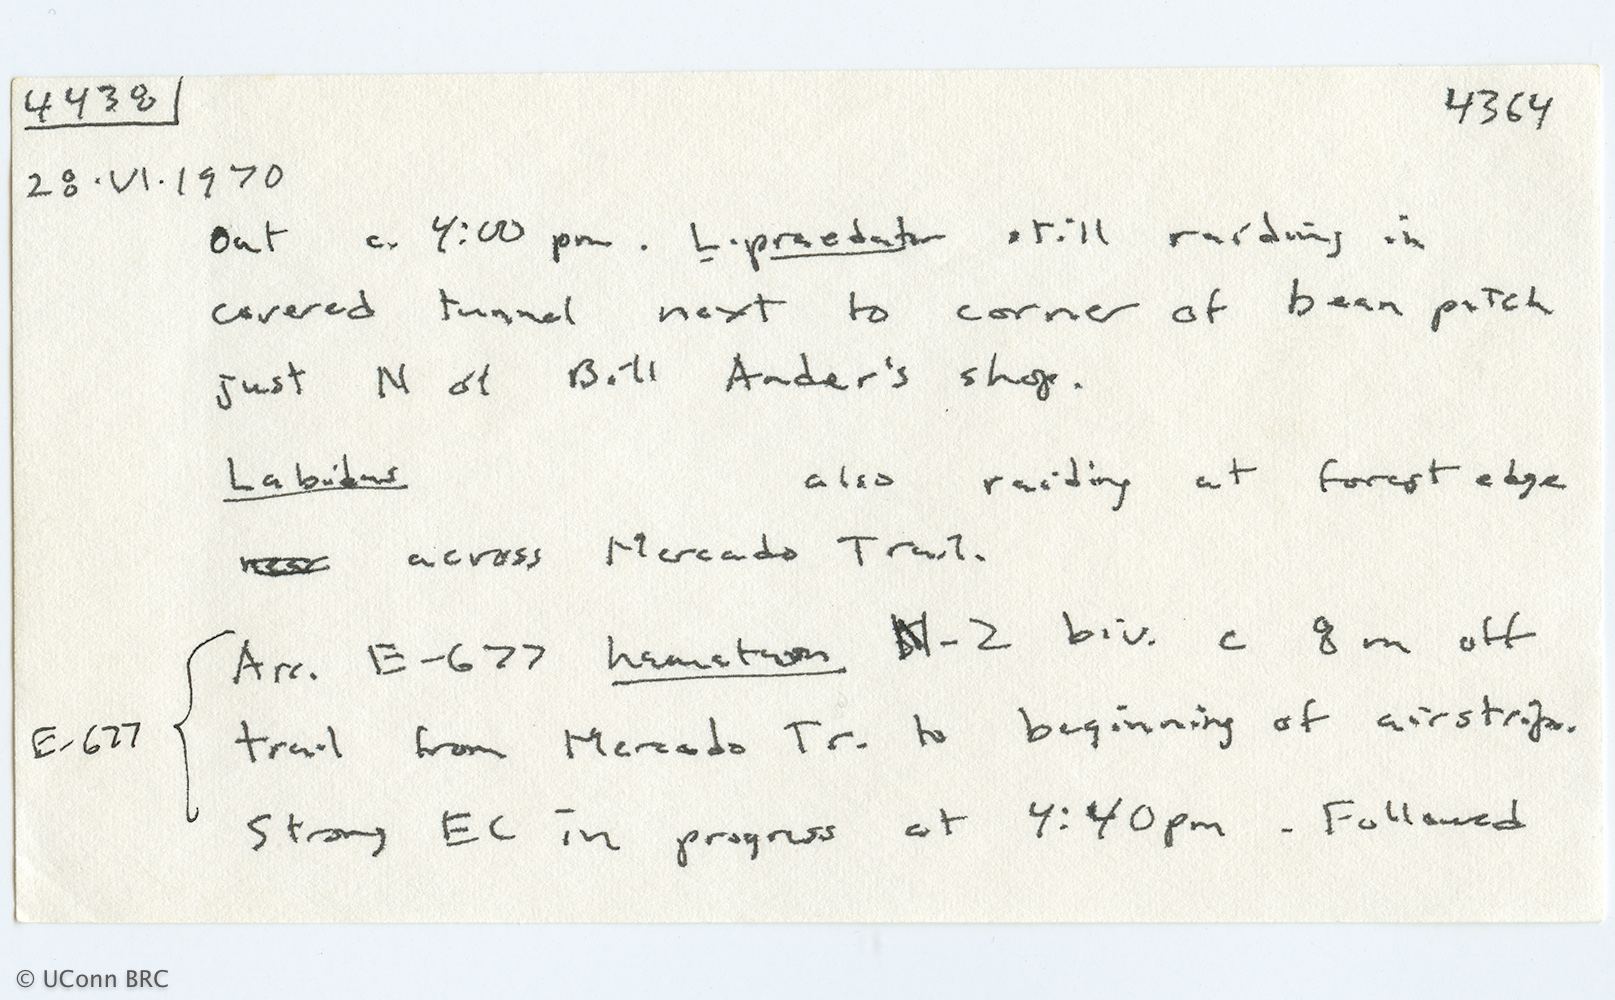 4438 4364
28.VI.1970
Out c. 4:00 pm. L. praedator still raiding in
covered tunnel next to corner of bean patch
just N of Bill Ander's shop.
Labidus also raiding at forest edge
near across Mercado Trail.
Arr. E-677 hamatum N-2 biv. c 8 m off
E-677 trail from Mercado Tr. to beginning of airstrip.
Strong EC in progress at 4:40pm - Followed
© UConn BRC